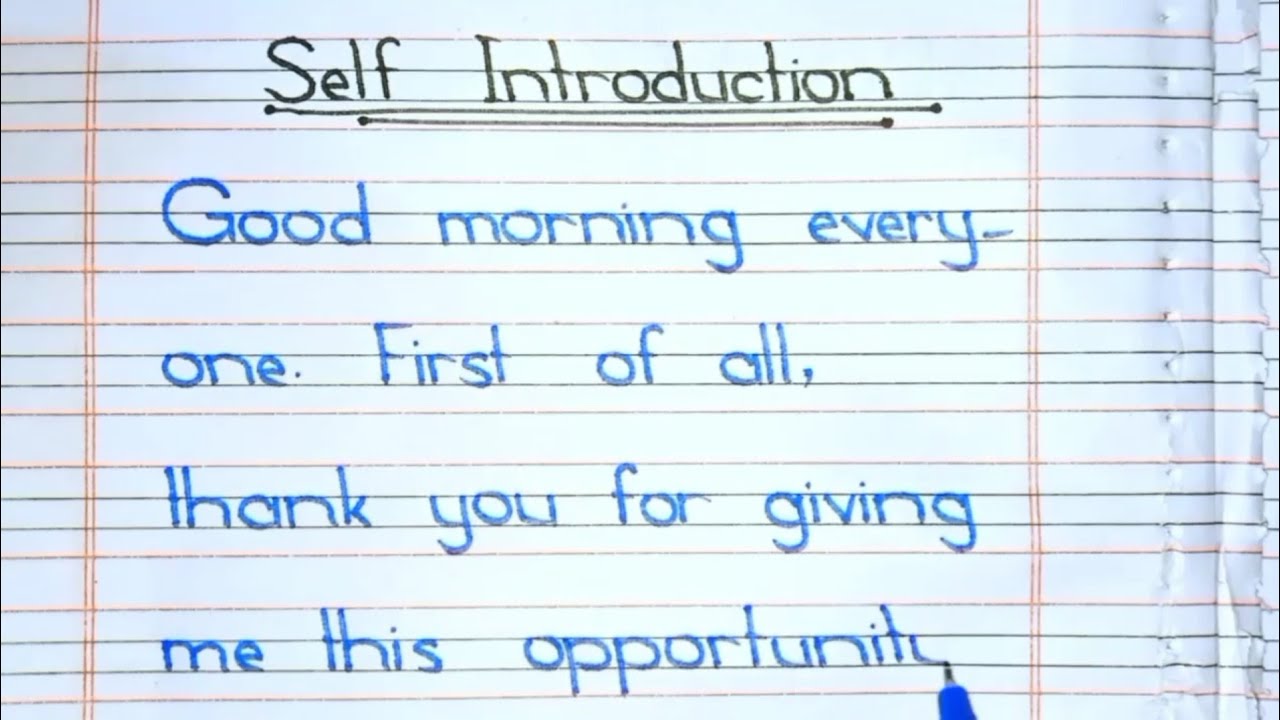 Self Introduction
Good morning every-
one. First of all,
thank you for giving
me this opportunit